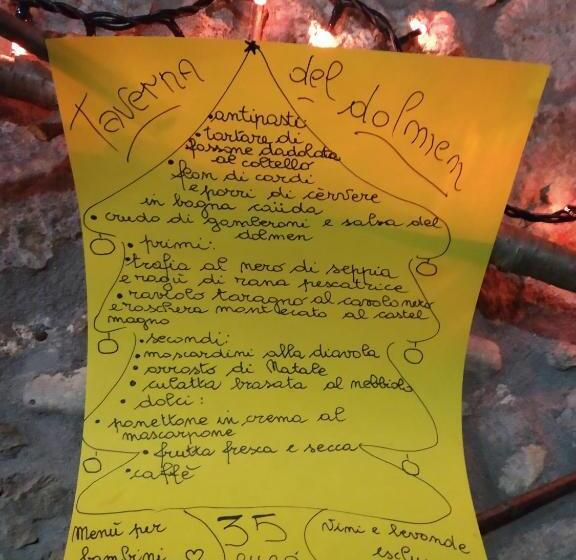 Taverna del dolmen
• antipasti
• tartare di
fassone dadolata
al coltello
• flan di cardi
e porri di cèrvere
in bagna caüda
• crudo di gamberoni e salsa del
dolmen
• primi:
• trofia al nero di seppia
e ragù di rana pescatrice
• raviolo taragno al cavolo nero
e raschera mantecato al castel
magno
• secondi:
• moscardini alla diavola
• arrosto di Natale
• culatta brasata al nebbiolo
• dolci:
• panettone in crema al
mascarpone
• frutta fresca e secca
• caffè
Menù per
bambini
35
euro
Vini e bevande
esclu